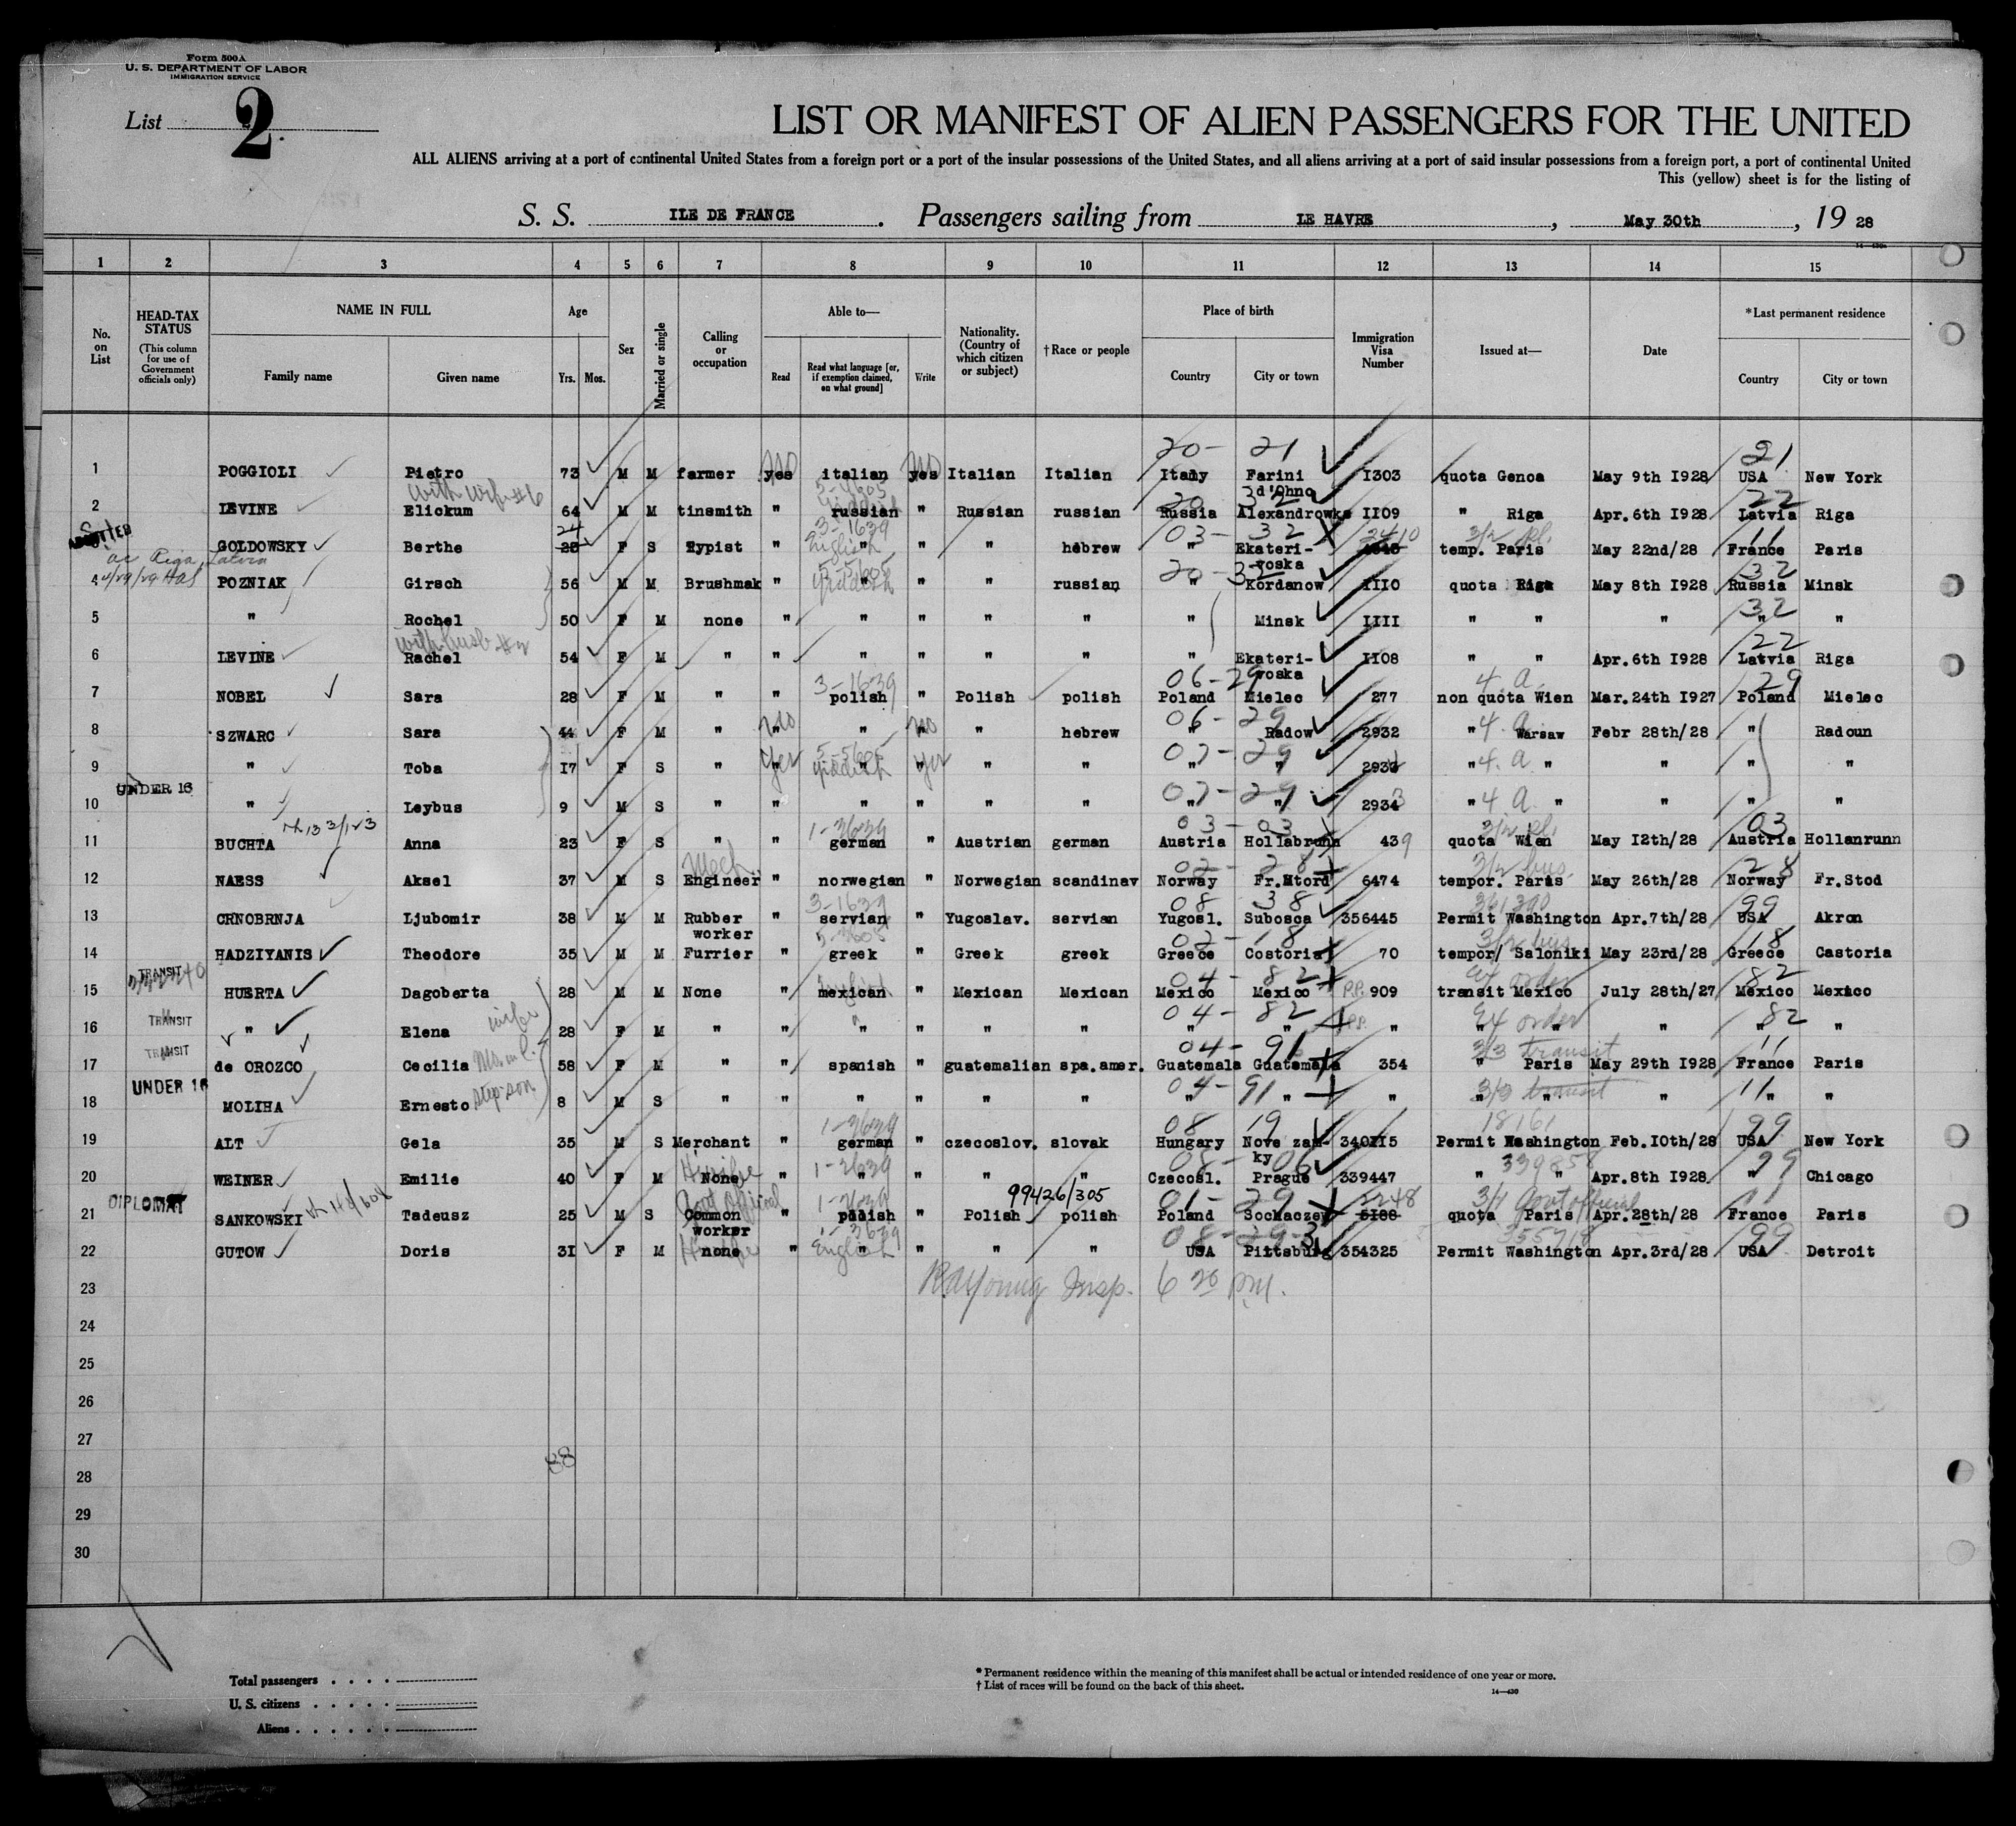 Form 500A
U. S. DEPARTMENT OF LABOR
IMMIGRATION SERVICE
List 2
LIST OR MANIFEST OF ALIEN PASSENGERS FOR THE UNITED
ALL ALIENS arriving at a port of continental United States from a foreign port or a port of the insular possessions of the United States, and all aliens arriving at a port of said insular possessions from a foreign port, a port of continental United
This (yellow) sheet is for the listing of
S. S. ILE DE FRANCE. Passengers sailing from LE HAVRE, May 30th, 19 28
1 2 3 4 5 6 7 8 9 10 11 12 13 14 15
No. on List
HEAD-TAX STATUS (This column for use of Government officials only)
NAME IN FULL
Family name
Given name
Age
Yrs. Mos.
Sex
Married or single
Calling or occupation
Able to—
Read
Read what language [or, if exemption claimed, on what ground]
Write
Nationality. (Country of which citizen or subject)
† Race or people
Place of birth
Country
City or town
Immigration Visa Number
Issued at—
Date
*Last permanent residence
Country
City or town
20- 21 21
1 POGGIOLI Pietro 73 M M farmer yes no italian yes no Italian Italian Italy Farini d'Ohno I303 quota Genoa May 9th I928 USA New York
with wife #6
2 LEVINE Elickum 64 M M tinsmith " russian " Russian russian Russia Alexandrowka II09 " Riga Apr.6th I928 Latvia Riga
3 GOLDOWSKY Berthe 24 F S Typist " " English " " hebrew " Ekateri-voska 2410 temp. Paris May 22nd/28 France Paris
4 POZNIAK Girsch 56 M M Brushmak " " Yiddish " " russian " Kordanow III0 quota Riga May 8th I928 Russia Minsk
5 " Rochel 50 F M none " " " " " " Minsk IIII " " " " "
with husb #2
6 LEVINE Rachel 54 F M " " " " " " " Ekateri-voska II08 " " Apr.6th I928 Latvia Riga
7 NOBEL Sara 28 F M " " polish " Polish polish Poland Mielec 277 non quota Wien Mar.24th I927 Poland Mielec
8 SZWARC Sara 44 F M " " no " " no " hebrew " Radow 2932 " 4. a Warsaw Febr 28th/28 " Radoun
9 " Toba I7 F S " " yes " Yiddish " yes " " " " 293 " 4. a " " " "
UNDER 16
10 " Leybus 9 M S " " " " " " " " 2933 " 4 a " " " "
11 BUCHTA Anna 23 F S " " german " Austrian german Austria Hollabrunn 439 quota Wien May I2th/28 Austria Hollanrunn
12 NAESS Aksel 37 M S Mech. Engineer " norwegian " Norwegian scandinav Norway Fr.Htord 6474 tempor. Paris May 26th/28 Norway Fr.Stod
13 CRNOBRNJA Ljubomir 38 M M Rubber worker " servian " Yugoslav. servian Yugosl. Subosca 356445 Permit Washington Apr.7th/28 USA Akron
14 HADZIYANIS Theodore 35 M M Furrier " greek " Greek greek Greece Costoria 70 tempor/ Saloniki May 23rd/28 Greece Castoria
TRANSIT
15 HUERTA Dagoberta 28 M M None " mexican " Mexican Mexican Mexico Mexico P.P. 909 transit Mexico July 28th/27 Mexico Mexico
TRANSIT
16 " Elena wife 28 F M " " " " " " " " P.P. " " " " " "
TRANSIT
17 de OROZCO Cecilia 58 F M " " spanish " guatemalian spa.amer. Guatemala Guatemala 354 " Paris May 29th I928 France Paris
UNDER 16
18 MOLIHA Ernesto step-son 8 M S " " " " " " " " " " " " " "
19 ALT Gela 35 M S Merchant " german " czecoslov. slovak Hungary Nove zam-ky 340II5 Permit Washington Feb.I0th/28 USA New York
20 WEINER Emilie 40 F M None " " " " " Czecosl. Prague 339447 " " Apr.8th I928 " Chicago
DIPLOMAT 99426/305
21 SANKOWSKI Tadeusz 25 M S Common worker Govt Official " polish " Polish polish Poland Sochaczew 5I88 quota Paris Apr.28th/28 France Paris
22 GUTOW Doris 3I F M none " " English " " " USA Pittsburg 354325 Permit Washington Apr.3rd/28 USA Detroit
23 Insp. 6 20 pm.
24
25
26
27
28
29
30
Total passengers
U. S. citizens
Aliens
* Permanent residence within the meaning of this manifest shall be actual or intended residence of one year or more.
† List of races will be found on the back of this sheet.
14—430